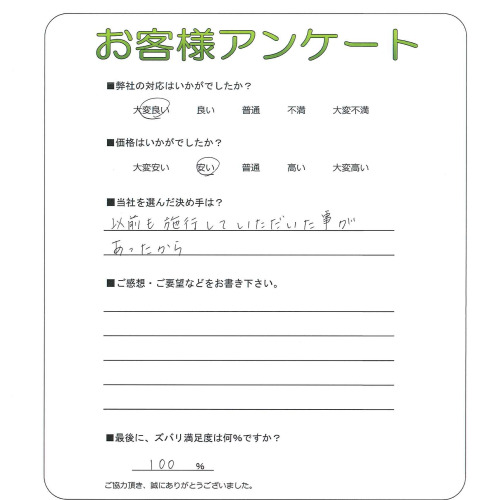 お客様アンケート
■弊社の対応はいかがでしたか？
大変良い 良い 普通 不満 大変不満
■価格はいかがでしたか？
大変安い 安い 普通 高い 大変高い
■当社を選んだ決め手は？
以前も施行していただいた事が
あったから
■ご感想・ご要望などをお書き下さい。
■最後に、ズバリ満足度は何%ですか？
100 %
ご協力頂き、誠にありがとうございました。